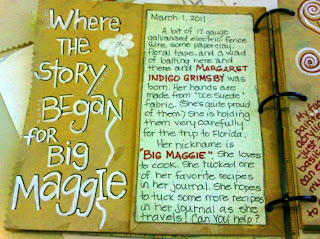 Where
the
Story
Began
for Big
Maggie
March 1, 2011
A bit of 17 gauge
galvanized electric fence
wire, some paperclay,
floral tape, and a wad
of batting here and
there and MARGARET
INDIGO GRIMSBY was
born. Her hands are
made from "ice suede"
fabric. (She's quite proud
of them.) She is holding
them very carefully
for the trip to Florida.
Her nickname is
"BIG MAGGIE". She loves
to cook. She tucked are
of her favorite recipes
in her journal. She hopes
to tuck some more recipes
in her journal as she
travels! Can you help?